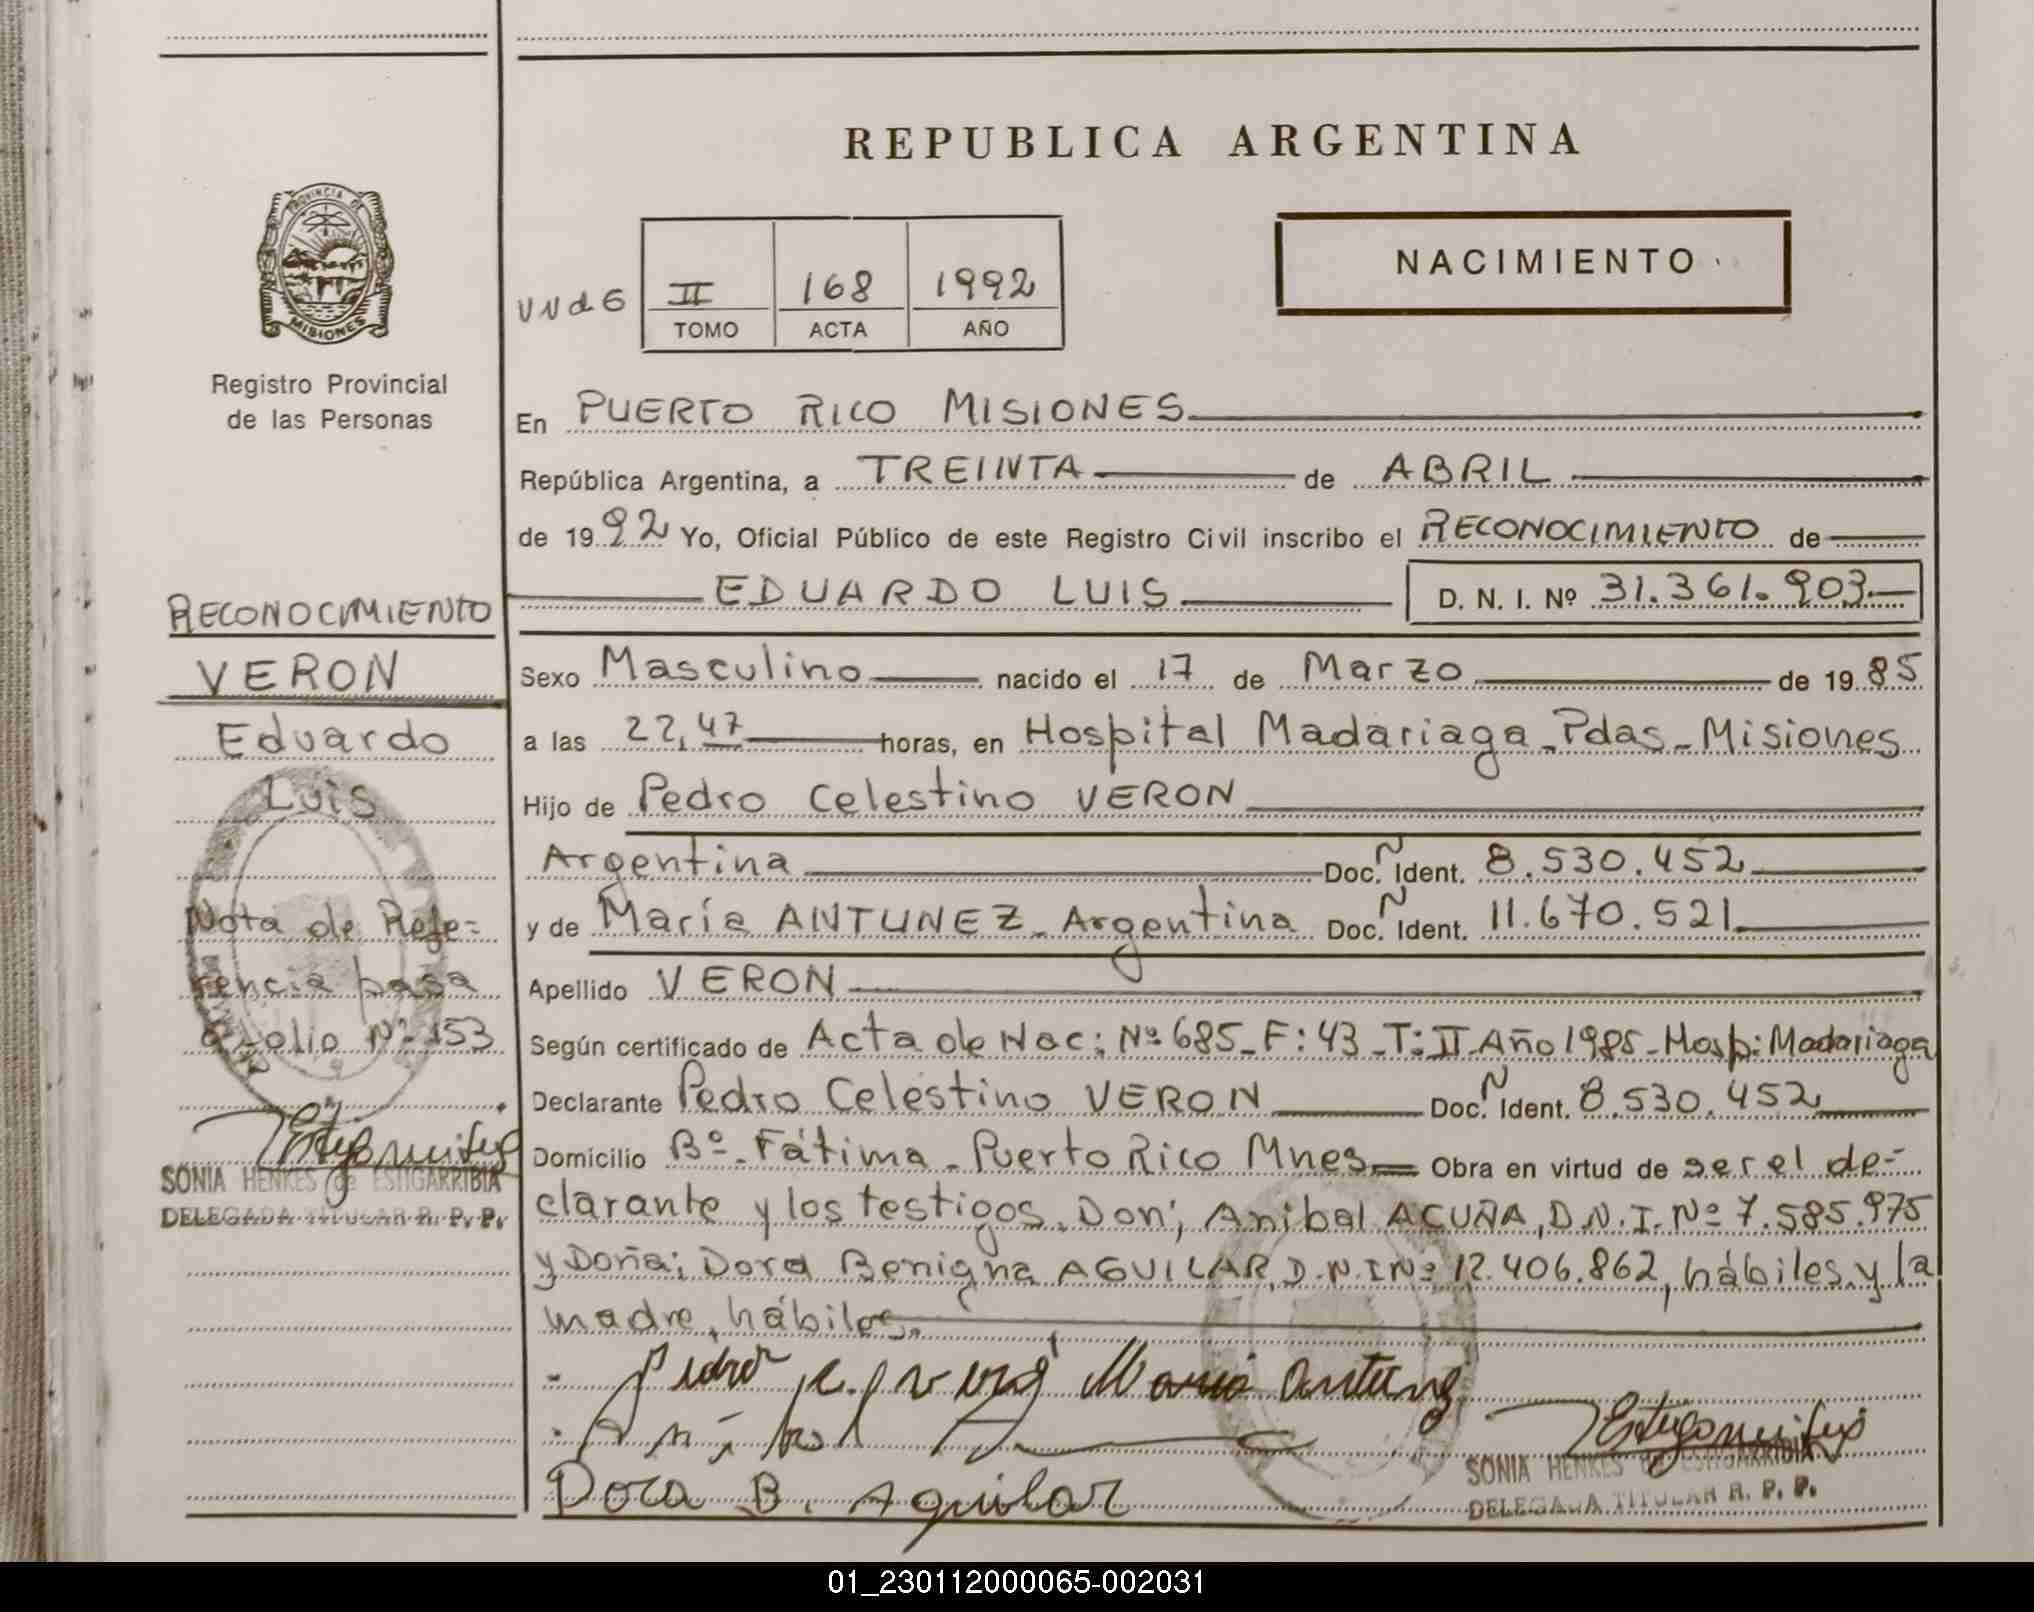 REPUBLICA ARGENTINA
PROVINCIA DE
MISIONES
Registro Provincial
de las Personas
NACIMIENTO
II 168 1992
TOMO ACTA AÑO
En PUERTO RICO MISIONES
República Argentina, a TREINTA de ABRIL
de 1992 Yo, Oficial Público de este Registro Civil inscribo el RECONOCIMIENTO de
EDUARDO LUIS D. N. I. Nº 31.361.903
Sexo Masculino nacido el 17 de Marzo de 1985
a las 22,47 horas, en Hospital Madariaga-Pdas-Misiones
Hijo de Pedro Celestino VERON
Argentina Doc. Ident. 8.530.452
y de María ANTUNEZ-Argentina Doc. Ident. 11.670.521
Apellido VERON
Según certificado de Acta de Nac: Nº 685-F:43-T:II Año 1985-Hosp: Madariaga
Declarante Pedro Celestino VERON Doc. Ident. 8.530.452
Domicilio Bº-Fátima-Puerto Rico Mnes Obra en virtud de ser el de-
clarante y los testigos, Don; Anibal ACUÑA, D.N.I. Nº 7.585.975
y Doña; Dora Benigna AGUILAR, D.N.I Nº 12.406.862, hábiles y la
madre, hábiles.
Pedro C. Maria Antunez
Anibal
Dora B. Aguilar
SONIA HENKES de ESTIGARRIBIA
DELEGADA TITULAR R. P. P.
RECONOCIMIENTO
VERON
Eduardo
Luis
Nota de Refe-
rencia pasa
a folio Nº 153
SONIA HENKES de ESTIGARRIBIA
DELEGADA TITULAR R. P. P.
01_230112000065-002031